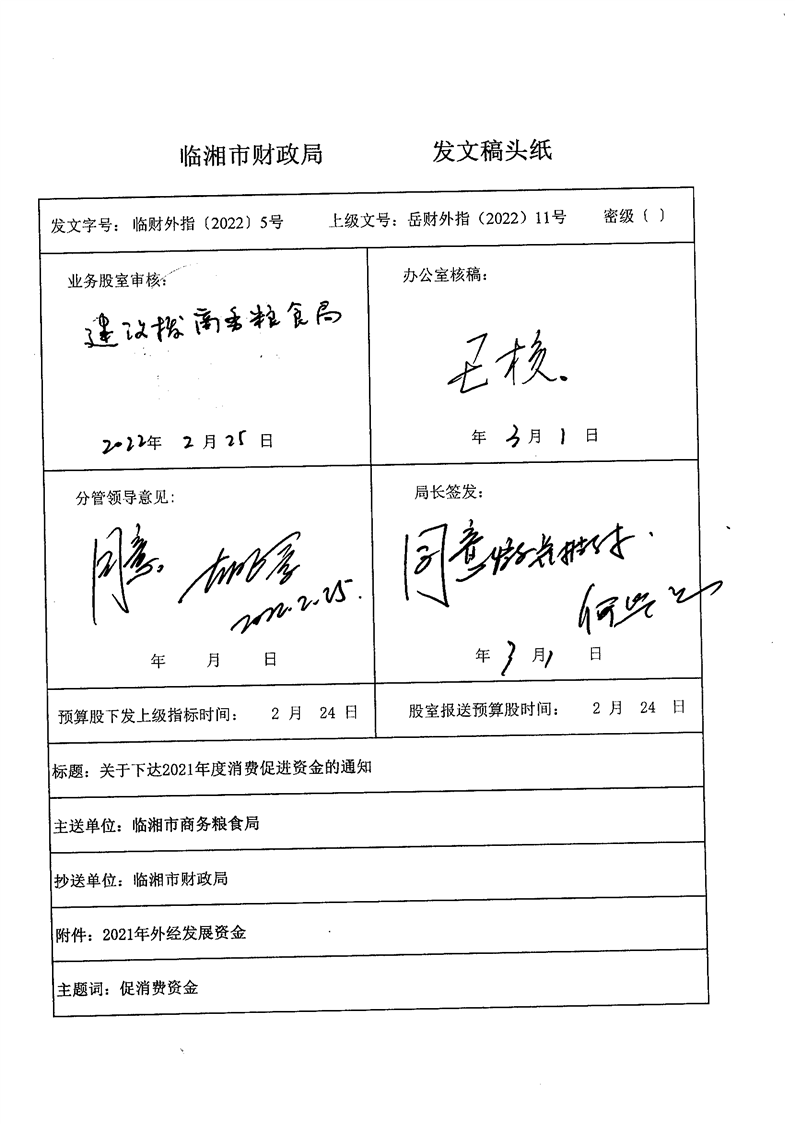 临湘市财政局 发文稿头纸
发文字号：临财外指〔2022〕5号 上级文号：岳财外指（2022）11号 密级（ ）
业务股室审核：
建议拨商务粮食局
2022年 2月 25日
办公室核稿：
已核。
年 3月 1日
分管领导意见：
同意。
2022.2.25.
年 月 日
局长签发：
同意
年 3月1 日
预算股下发上级指标时间： 2 月 24 日
股室报送预算股时间： 2 月 24 日
标题：关于下达2021年度消费促进资金的通知
主送单位：临湘市商务粮食局
抄送单位：临湘市财政局
附件：2021年外经发展资金
主题词：促消费资金